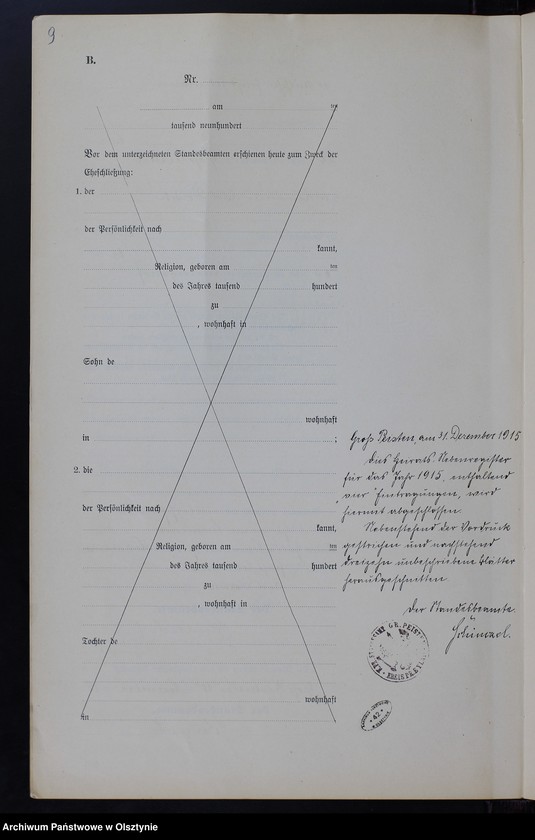 9
B.
Nr.
am ten
tausend neunhundert
Vor dem unterzeichneten Standesbeamten erschienen heute zum Zweck der
Eheschließung:
1. der
der Persönlichkeit nach
kannt,
Religion, geboren am ten
des Jahres tausend hundert
zu
, wohnhaft in
Sohn de
wohnhaft
in ;
2. die
der Persönlichkeit nach
kannt,
Religion, geboren am ten
des Jahres tausend hundert
zu
, wohnhaft in
Tochter de
wohnhaft
in
Groß Peisten, am 31. Dezember 1915
Dies Heirats-Nebenregister
für das Jahr 1915, enthaltend
vier Eintragungen, wird
hiermit abgeschlossen.
Nebenstehend der Vordruck
gestrichen und nachstehend
dreizehn unbeschriebene Blätter
herausgeschnitten.
Der Standesbeamte.
GR. PEISTEN
KREIS PR. EYLAU
42
Archiwum Państwowe w Olsztynie